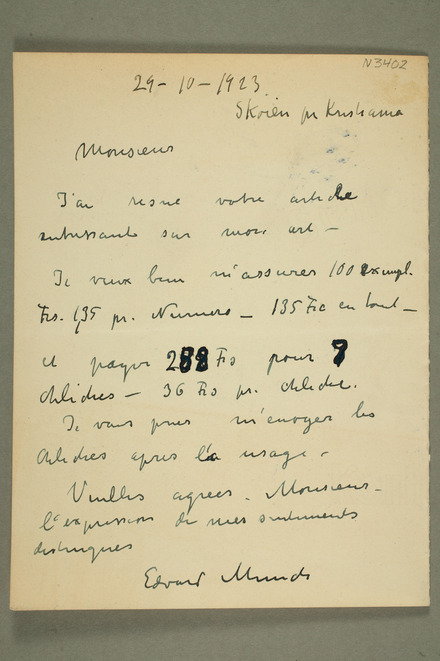 N 3402
29-10-1923
Skoien pr Kristiania
Monsieur
J'ai resue votre article
intressante sur mon art —
Je veux bien m'assurer 100 exempl.
Frs. 1,35 pr. Numero — 135 Frs en tout —
et payer 288 Frs pour 8
clichées — 36 Frs pr. cliche.
Je vous pries m'envoyer les
clichées apres l'a usage.
Veulles agreer. Monsieur —
l'expression de mes sentiments
distingues
Edvard Munch